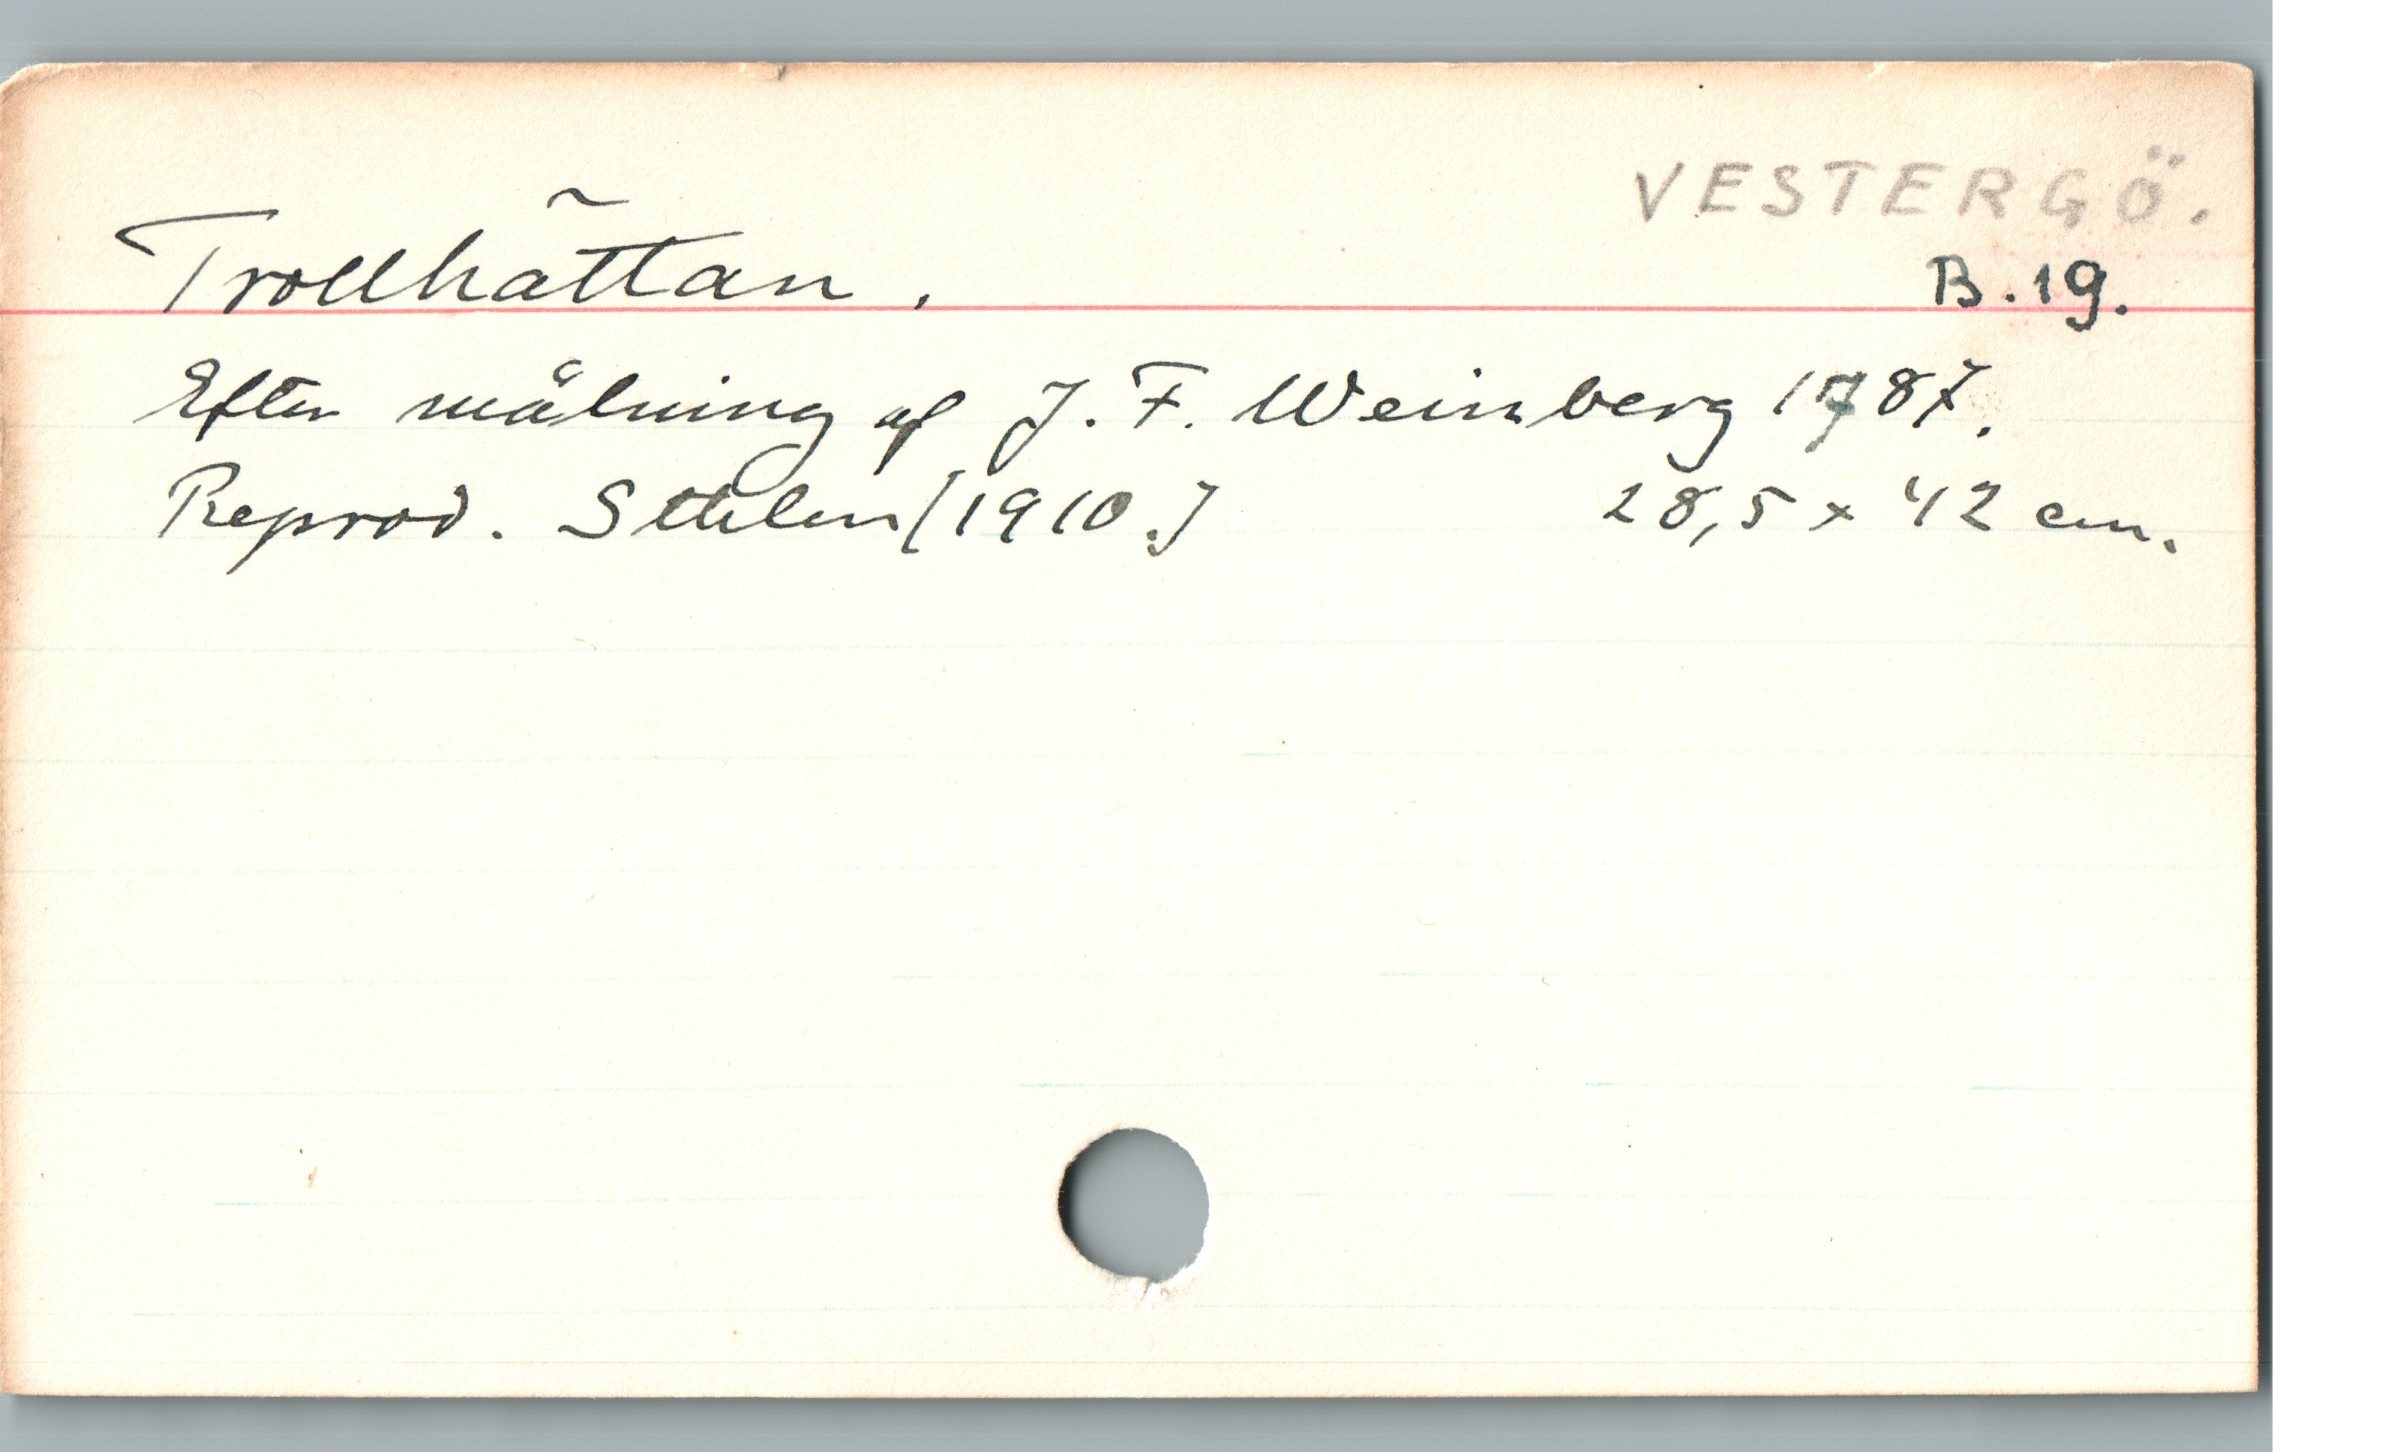 VESTERGÖ.
Trollhättan.
B.19.
Efter målning af J. F. Weinberg 1787.
Reprod. Sthlm [1910.] 28,5 x 42 cm.